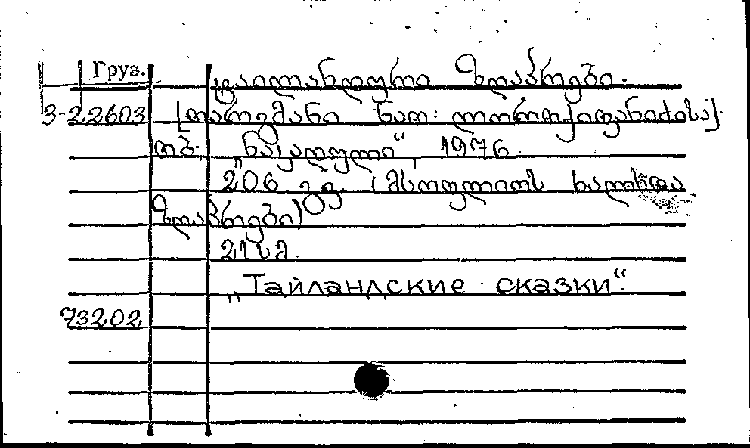 Груз.
ტაილანდური ზღაპრები.
3-22603 [თარგმანი ნათ. ლორთქიფანიძისა].
თბ. „ნაკადული“, 1976.
206 გვ. (მსოფლიოს ხალხთა
ზღაპრები)
21 სმ.
„Тайландские сказки“.
73202